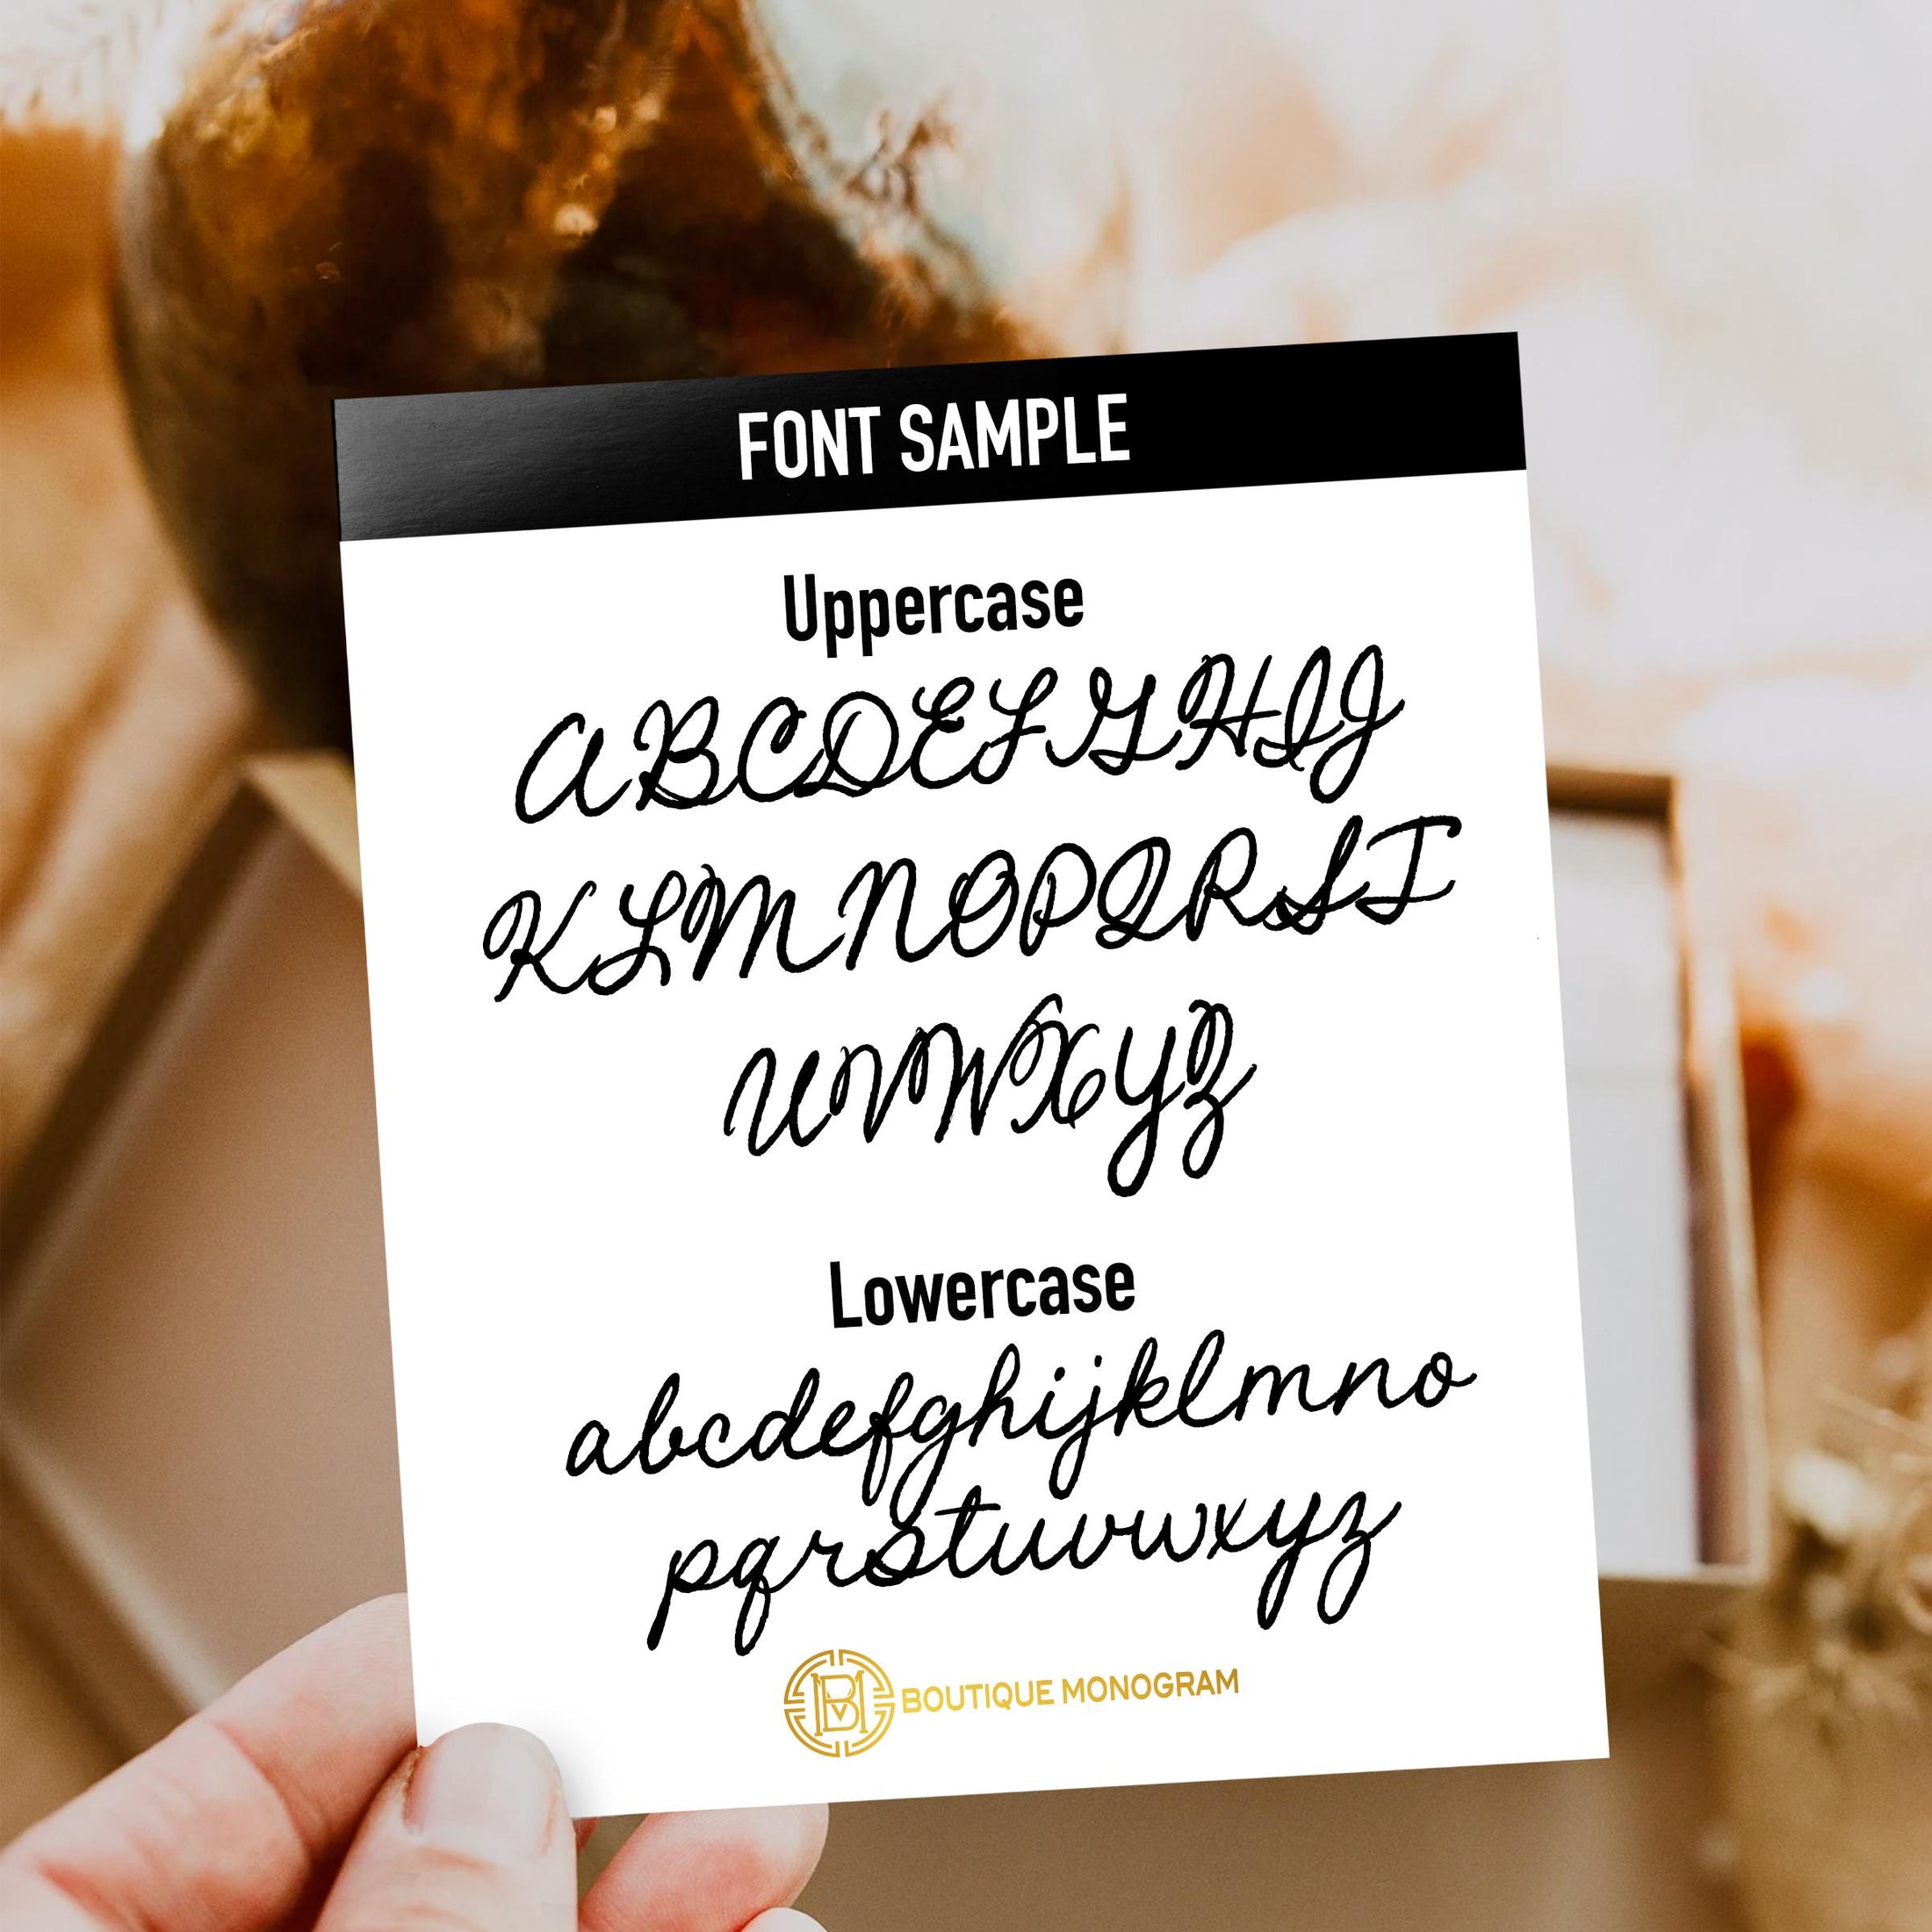 FONT SAMPLE
Uppercase
ABCDEFGHIJ
KLMNOPQRST
UVWXYZ
Lowercase
abcdefghijklmno
pqrstuvwxyz
BM BOUTIQUE MONOGRAM